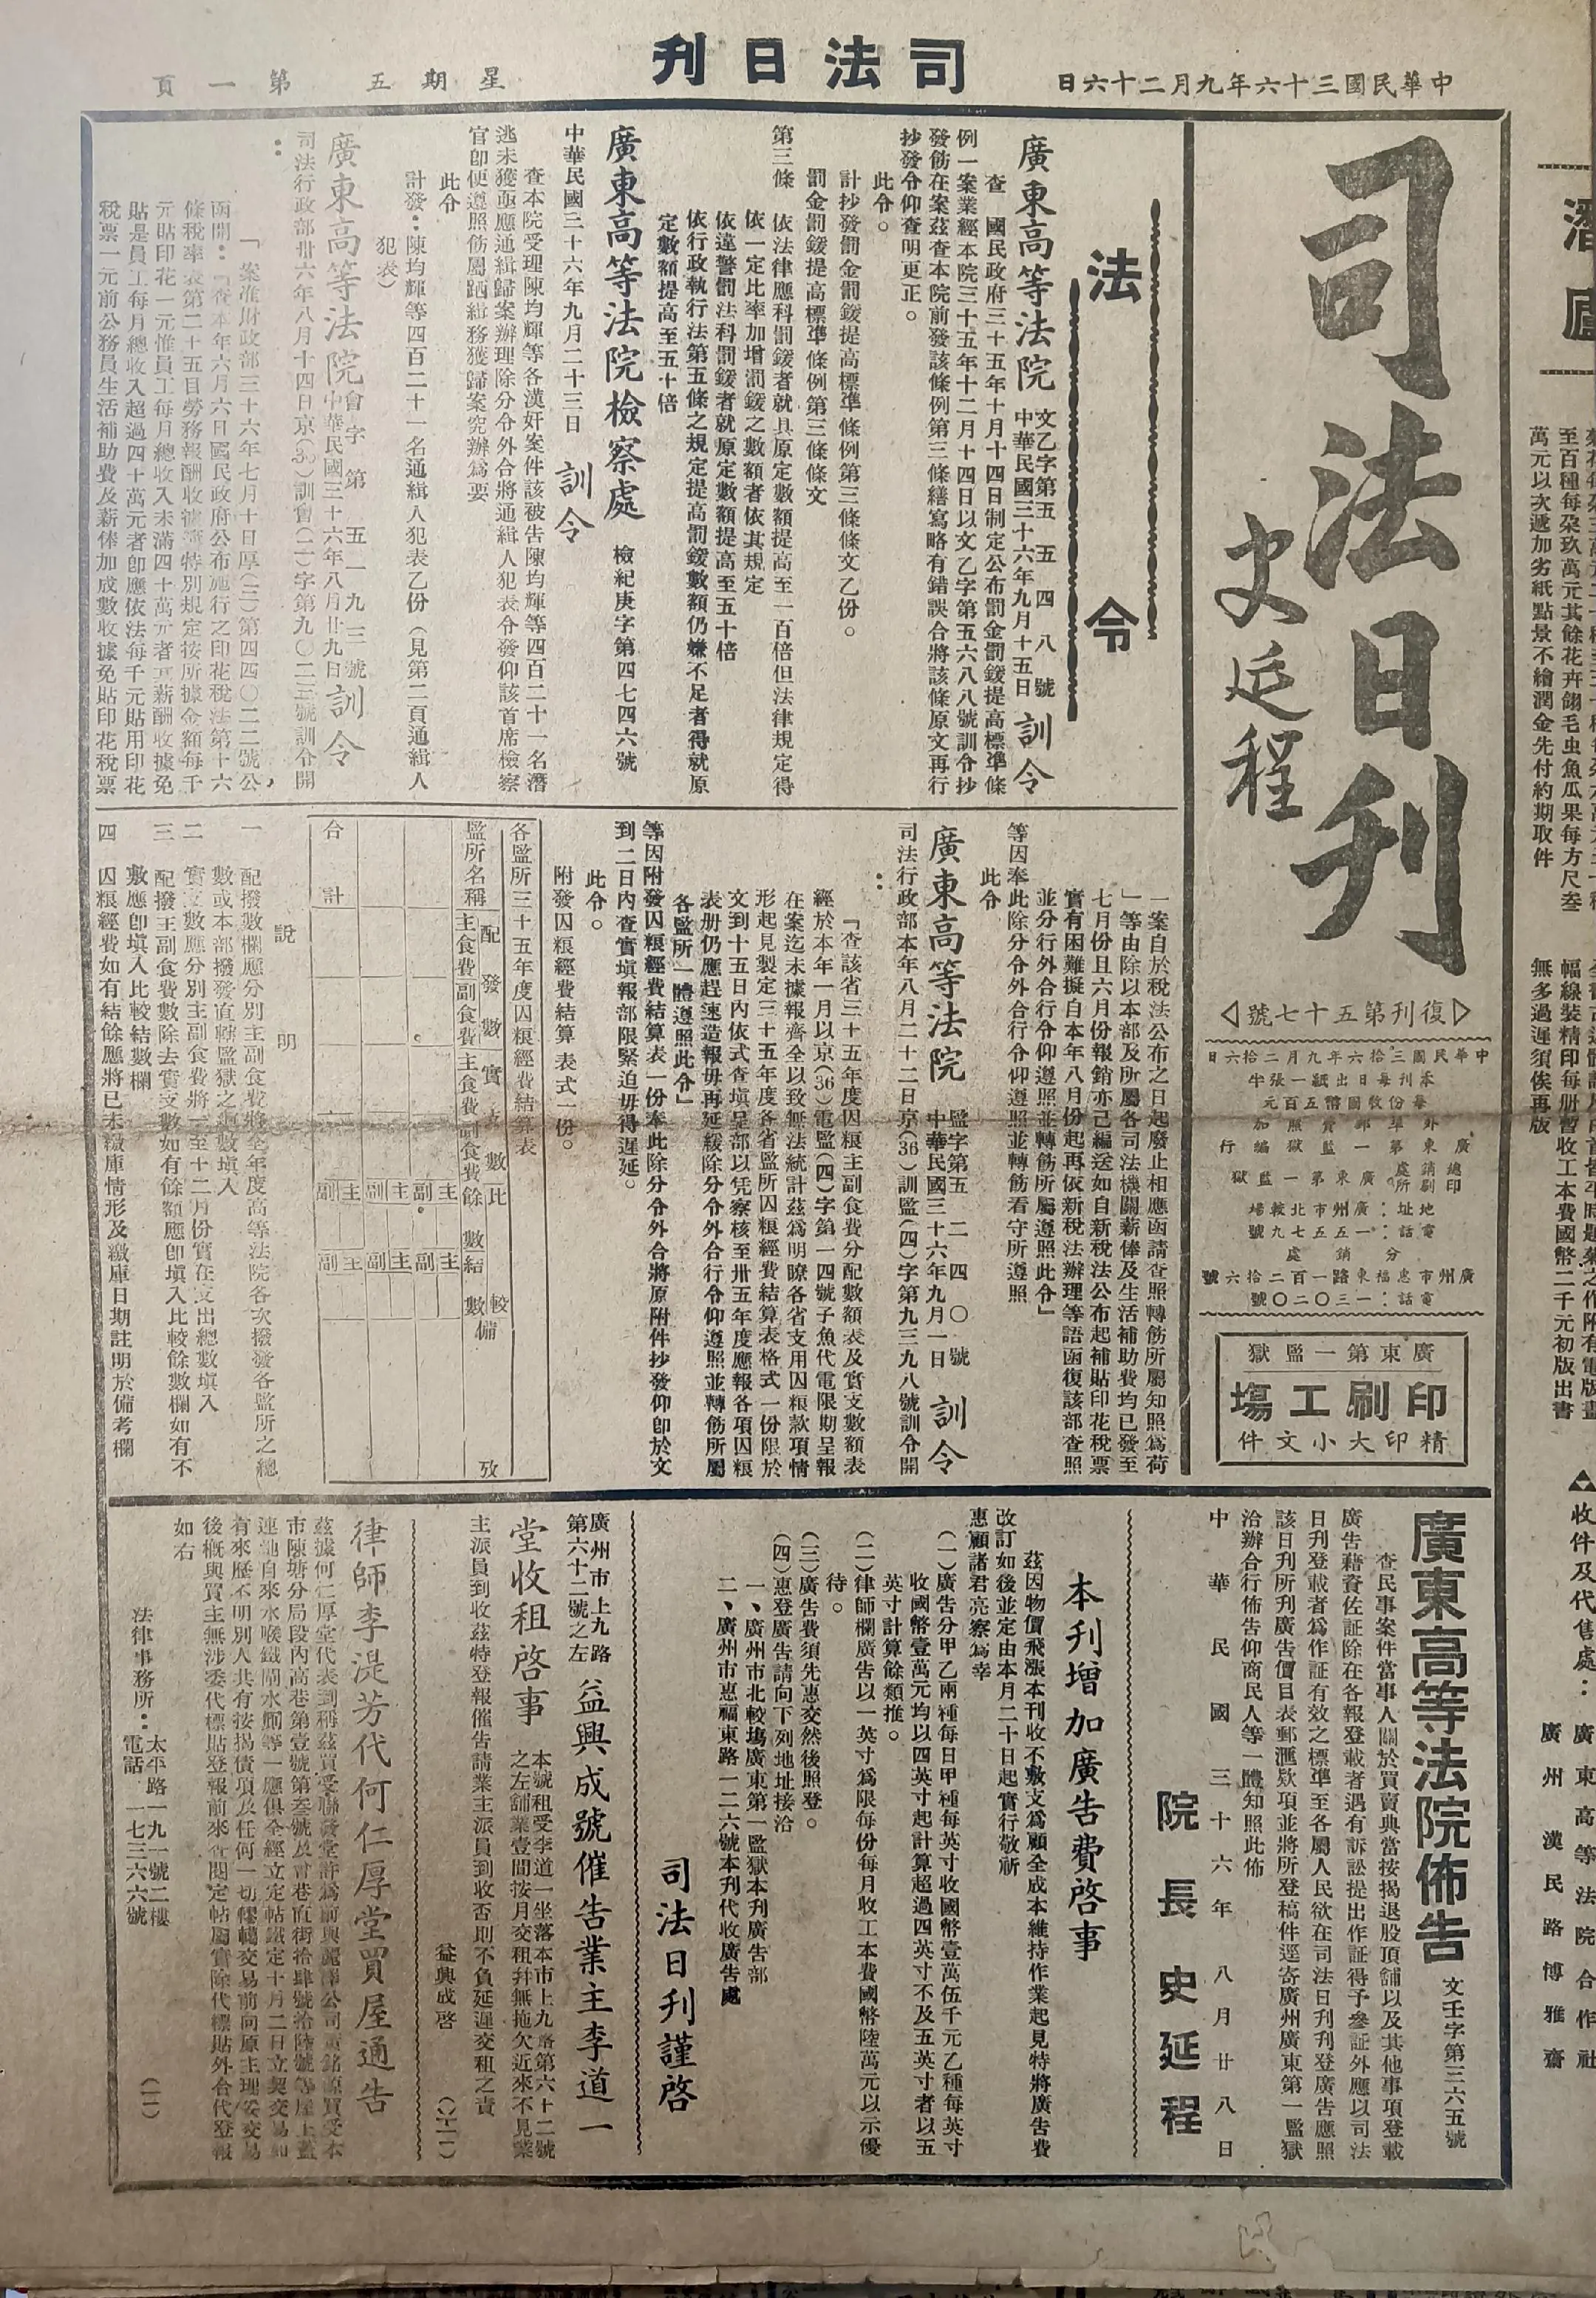 中華民國三十六年九月二十六日
司法日刊
星期五　第一頁
司法日刊
史延程
復刊第五十七號
中華民國三拾六年九月二拾六日
本刊每日出紙一張半
每份收國幣五百元
外埠郵費照加
廣東第一監獄編行
總銷處
印刷所
廣東第一監獄
地址：廣州市北較場
電話：一五五七九號
分銷處
廣州市惠福東路一百二拾六號
電話：一三〇二〇號
廣東第一監獄
印刷工塲
精印大小文件
法令
廣東高等法院 訓令
文乙字第五五四八號
中華民國三十六年九月十五日
查　國民政府三十五年十月十四日制定公布罰金罰鍰提高標準條
例一案業經本院三十五年十二月十四日以文乙字第五六八八號訓令抄
發飭在案茲查本院前發該條例第三條繕寫略有錯誤合將該條原文再行
抄發令仰查明更正。
此令。
計抄發罰金罰鍰提高標準條例第三條條文乙份。
罰金罰鍰提高標準條例第三條條文
第三條　依法律應科罰鍰者就其原定數額提高至一百倍但法律規定得
依一定比率加增罰鍰之數額者依其規定
依違警罰法科罰鍰者就原定數額提高至五十倍
依行政執行法第五條之規定提高罰鍰數額仍嫌不足者得就原
定數額提高至五十倍
廣東高等法院檢察處
檢紀庚字第四七四六號
中華民國三十六年九月二十三日　訓令
查本院受理陳均輝等各漢奸案件該被告陳均輝等四百二十一名潛
逃未獲亟應通緝歸案辦理除分令外合將通緝人犯表令發仰該首席檢察
官卽便遵照飭屬跴緝務獲歸案究辦爲要
此令
計發：陳均輝等四百二十一名通緝人犯表乙份（見第二頁通緝人
犯表）
廣東高等法院 訓令
會字第五一九三號
中華民國三十六年八月廿九日
司法行政部卅六年八月十四日京(36)訓會(二)字第九〇二三號訓令開
：
「案准財政部三十六年七月十日厚(三)第四四〇二二號公
函開：『查本年六月六日國民政府公布施行之印花稅法第十六
條稅率表第二十五目勞務報酬收據特別規定按所據金額每千
元貼印花一元惟員工每月總收入未滿四十萬元者其薪酬收據免
貼是員工每月總收入超過四十萬元者卽應依法每千元貼用印花
稅票一元前公務員生活補助費及薪俸加成數收據免貼印花稅票
一案自於稅法公布之日起廢止相應函請查照轉飭所屬知照爲荷
」等由除以本部及所屬各司法機關薪俸及生活補助費均已發至
七月份且六月份報銷亦已編送如自新稅法公布起補貼印花稅票
實有困難擬自本年八月份起再依新稅法辦理等語函復該部查照
並分行外合行令仰遵照並轉飭所屬遵照此令」
等因奉此除分令外合行令仰遵照並轉飭看守所遵照
此令
廣東高等法院 訓令
監字第五二四〇號
中華民國三十六年九月一日
司法行政部本年八月二十二日京(36)訓監(四)字第九三九八號訓令開
：
「查該省三十五年度囚粮主副食費分配數額表及實支數額表
經於本年一月以京(36)電監(四)字第一四號子魚代電限期呈報
在案迄未據報齊全以致無法統計茲爲明瞭各省支用囚粮款項情
形起見製定三十五年度各省監所囚粮經費結算表格式一份限於
文到十五日內依式查塡呈部以凭察核至卅五年度應報各項囚粮
表册仍應趕速造報毋再延緩除分令外合行令仰遵照並轉飭所屬
各監所一體遵照此令」
等因附發囚粮經費結算表一份奉此除分令外合將原附件抄發仰卽於文
到二日內查實塡報部限緊迫毋得遲延。
此令。
附發囚粮經費結算表式一份。
各監所三十五年度囚粮經費結算表
監所名稱
配發數
主食費
副食費
實支數
主食費
副食費
比較
餘數
結數
備攷
主 副 主 副 主 副
主 副 主 副 主 副
合計
說明
一　配撥數欄應分別主副食費將全年度高等法院各次撥發各監所之總
數或本部撥發直轄監獄之總數塡入
二　實支數應分別主副食費將一至十二月份實在支出總數塡入
三　配撥主副食費數除去實支數如有餘額應卽塡入比較餘數欄如有不
敷應卽塡入比較結數欄
四　囚粮經費如有結餘應將已未繳庫情形及繳庫日期註明於備考欄
廣東高等法院佈告
文壬字第三六五號
查民事案件當事人關於買賣典當按揭退股頂舖以及其他事項登載
廣告藉資佐証除在各報登載者遇有訴訟提出作証得予參証外應以司法
日刊登載者爲作証有效之標準至各屬人民欲在司法日刊刊登廣告應照
該日刊所刊廣告價目表郵滙欵項並將所登稿件逕寄廣州廣東第一監獄
洽辦合行佈告仰商民人等一體知照此佈
中華民國三十六年八月廿八日
院長史延程
本刊增加廣告費啓事
茲因物價飛漲本刊收不敷支爲顧全成本維持作業起見特將廣告費
改訂如後並定由本月二十日起實行敬祈
惠顧諸君亮察爲幸
(一)廣告分甲乙兩種每日甲種每英寸收國幣壹萬伍千元乙種每英寸
收國幣壹萬元均以四英寸起計算超過四英寸不及五英寸者以五
英寸計算餘類推。
(二)律師欄廣告以一英寸爲限每份每月收工本費國幣陸萬元以示優
待。
(三)廣告費須先惠交然後照登。
(四)惠登廣告請向下列地址接洽
一、廣州市北較塲廣東第一監獄本刊廣告部
二、廣州市惠福東路一二六號本刊代收廣告處
司法日刊謹啓
廣州市上九路
第六十二號之左
益興成號催告業主李道一
堂收租啓事
本號租受李道一坐落本市上九路第六十二號
之左舖業壹間按月交租幷無拖欠近來不見業
主派員到收茲特登報催告請業主派員到收否則不負延遲交租之責
益興成啓
律師李湜芳代何仁厚堂買屋通吿
茲據何仁厚堂代表到稱茲買受聯發堂許爲前與麗澤公司黃銘源買受本
市陳塘分局段內高巷第壹號第叁號及會巷直街拾肆號拾陸號等屋上蓋
連地自來水喉鐵閘水簡等一應俱全經立定帖鐵定十月二日立契交易如
有來歷不明別人共有按揭債項及任何一切轇轕交易前向原主理妥交易
後概與買主無涉委代標貼登報前來查閱定帖屬實除代標貼外合代登報
如右
法律事務所：太平路一九一號二樓
電話　一七三六六號
(二)
收件及代售處：
廣東高等法院合作社
廣州漢民路博雅齋
至百種每朶玖萬元其餘花卉翎毛虫魚瓜果每方尺叁
萬元以次遞加劣紙點景不繪潤金先付約期取件
幅線裝精印每册暫收工本費國幣二千元初版出書
無多過遲須俟再版